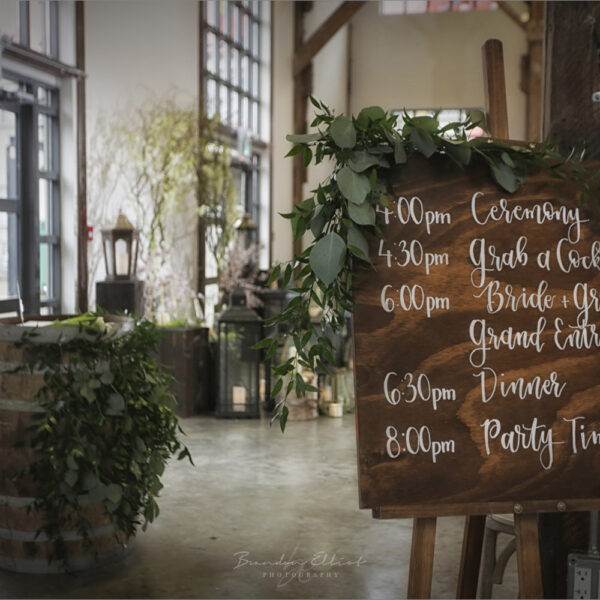 4:00pm Ceremony
4:30pm Grab a Cock
6:00pm Bride + Gr
Grand Entr
6:30pm Dinner
8:00pm Party Tim
Brandyn Elliot
PHOTOGRAPHY